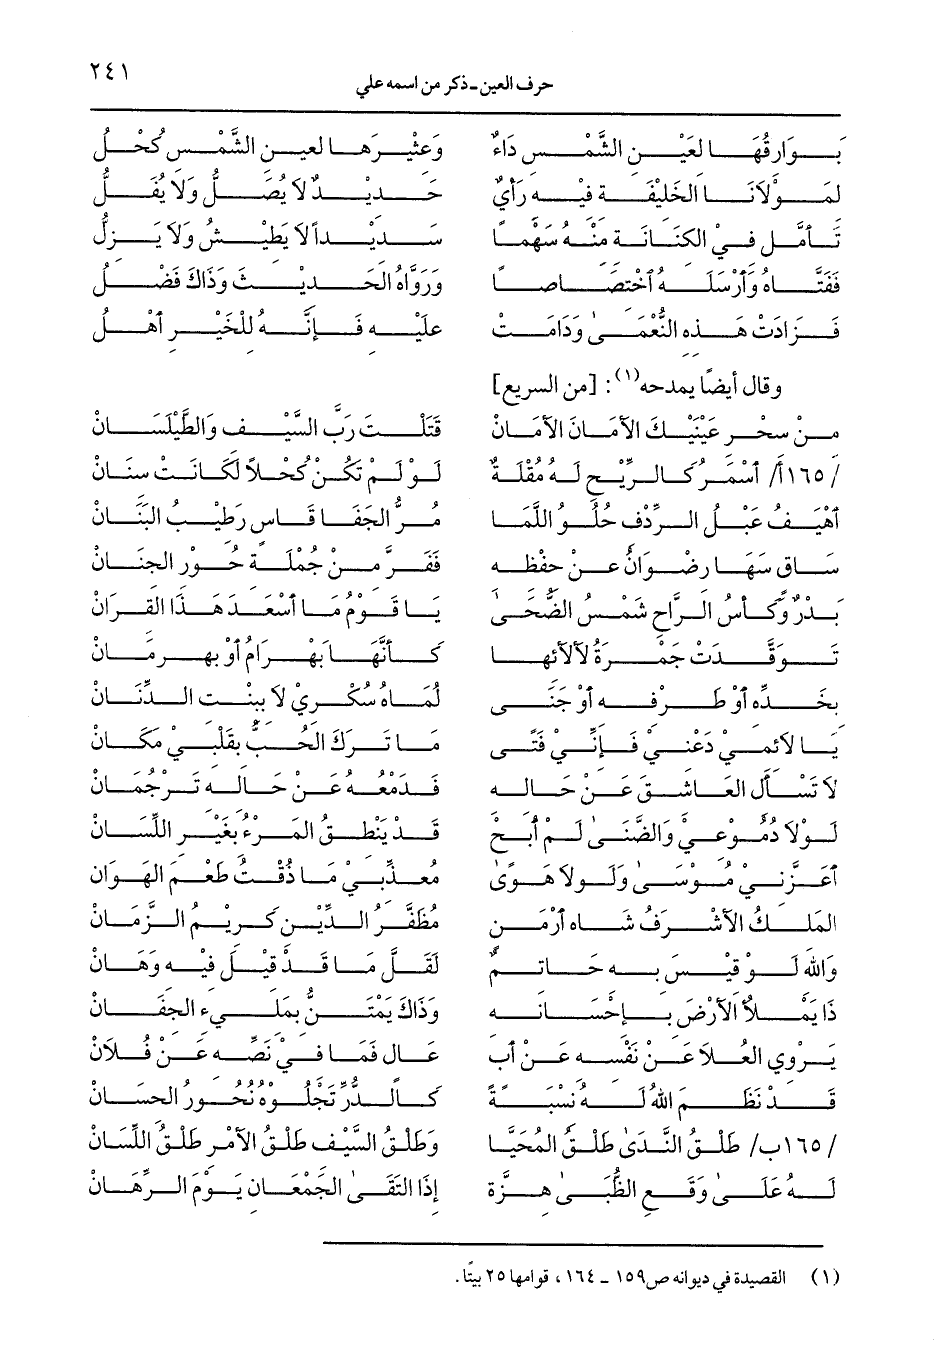 ٢٤١
حرف العين - ذكر من اسمه علي
بَوَارقُهَا لعَيْنِ الشَّمْسِ دَاءٌ وَعثْيَرهَا لعينِ الشَّمْسِ كُحْلُ
لمَوْلَانَا الخَليْفَة فيْهِ رَأيٌ حَديْدٌ لَا يُصَلُّ وَلَا يُفَلُّ
تَأَمَّلَ فيْ الكنَانَة مِنْهُ سَهْمًا سَديْدًا لَا يَطيْشُ وَلَا يَزلُّ
فَفَتَّاهُ وَأَرْسَلَهُ أخْتصَاصًا وَرَوَّاهُ الحَديْثَ وَذَاكَ فَضْلُ
فَزَادَتْ هَذه النُّعْمَىٰ وَدَامَتْ عَليْهِ فَإِنَّهُ للخَيْرِ أَهْلُ
وقال أيضًا يمدحه(١): [من السريع]
مِنْ سحْرِ عَيْنَيْكَ الأمَانَ الأمَانْ قَتَلْتَ رَبَّ السَّيْفِ وَالطَّيْلَسَانْ
/١٦٥أ/ أَسْمَرُ كَالرِّيْحِ لَهُ مُقْلَةٌ لَوْ لَمْ تَكُنْ كُحْلًا لَكَانَتْ سنَانْ
أَهْيَفُ عَبْلُ الرِّدْفِ حُلْوُ اللَّمَا مُرُّ الجَفَا قَاسٍ رَطيْبُ البَنَانْ
سَاقٍ سَهَا رضْوَانُ عَنْ حفْظِه فَفَرَّ منْ جُمْلَةِ حُوْرِ الجنَانْ
بَدْرٌ وَكَأْسُ الرَّاحِ شَمْسُ الضُّحَى يَا قَوْمُ مَا أَسْعَدَ هَذَا القرَانْ
تَوَقَّدَتْ جَمْرَةُ لألَائهَا كَأنَّهَا بَهْرَامُ أَوْ بهرمَانْ
بخَدِّه أَوْ طَرْفِه أَوْ جَنَى لَمَاهُ سُكْريْ لَا ببنْت الدِّنَانْ
يَا لَائميْ دَعْنيْ فَإِنِّيْ فَتًى مَا تَرَكَ الحُبُّ بقَلْبيْ مَكَانْ
لَا تَسْأَلِ العَاشقَ عَنْ حَاله فَدَمْعُهُ عَنْ حَاله تَرْجُمَانْ
لَوْلَا دُمُوْعيْ وَالضَّنَىٰ لَمْ أَبُحْ قَدْ يَنْطقُ المَرْءُ بغَيْرِ اللِّسَانْ
أَعَزَّنيْ مُوْسَىٰ وَلَولَا هَوَىٰ مُعَذِّبيْ مَا ذُقْتُ طَعْمَ الهَوَانْ
المَلكُ الأشْرَفُ شَاه أَرْمَنٍ مُظَفَّرُ الدِّيْنِ كَريْمُ الزَّمَانْ
وَالله لَوْ قيْسَ به حَاتمٌ لَقَلَّ مَا قَدْ قيْلَ فيْه وَهَانْ
ذَا يَمْلأُ الأرْضَ بإِحْسَانه وَذَاكَ يَمْتَنُّ بمَليْءِ الجفَانْ
يَرْوي العُلَا عَنْ نَفْسه عَنْ أَبٍ عَالٍ فَمَا فيْ نَصِّه عَنْ فُلَانْ
قَدْ نَظَمَ اللهُ لَهُ نسْبَةً كَالدُّرِّ تَجْلُوْهُ نُحُوْرُ الحسَانْ
/١٦٥ب/ طَلْقُ النَّدَىٰ طَلْقُ المُحَيَّا وَطَلْقُ السَّيْفِ طَلْقُ الأمْرِ طَلْقُ اللِّسَانْ
لَهُ عَلَىٰ وَقْعِ الظُّبَىٰ هزَّةٌ إِذَا التَقَىٰ الجَمْعَانِ يَوْمَ الرِّهَانْ
(١) القصيدة في ديوانه ص١٥٩ - ١٦٤، قوامها ٢٥ بيتًا.